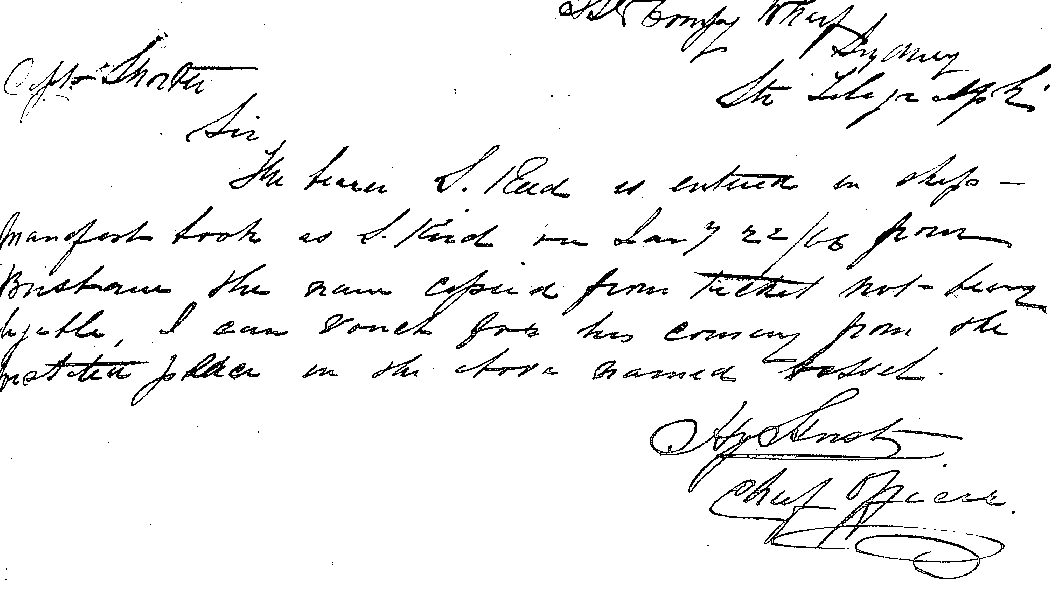 Compy Wharf
Sydney
Str Telegraph
Captn Shorter
Sir
The bearer S. Reed is entered in ships -
manifest book as S. Kird on Jany 22/66 from
Brisbane the name copied from ticket not being
legable, I can vouch for his coming from the
place in the above named vessel.
Chief Officer.